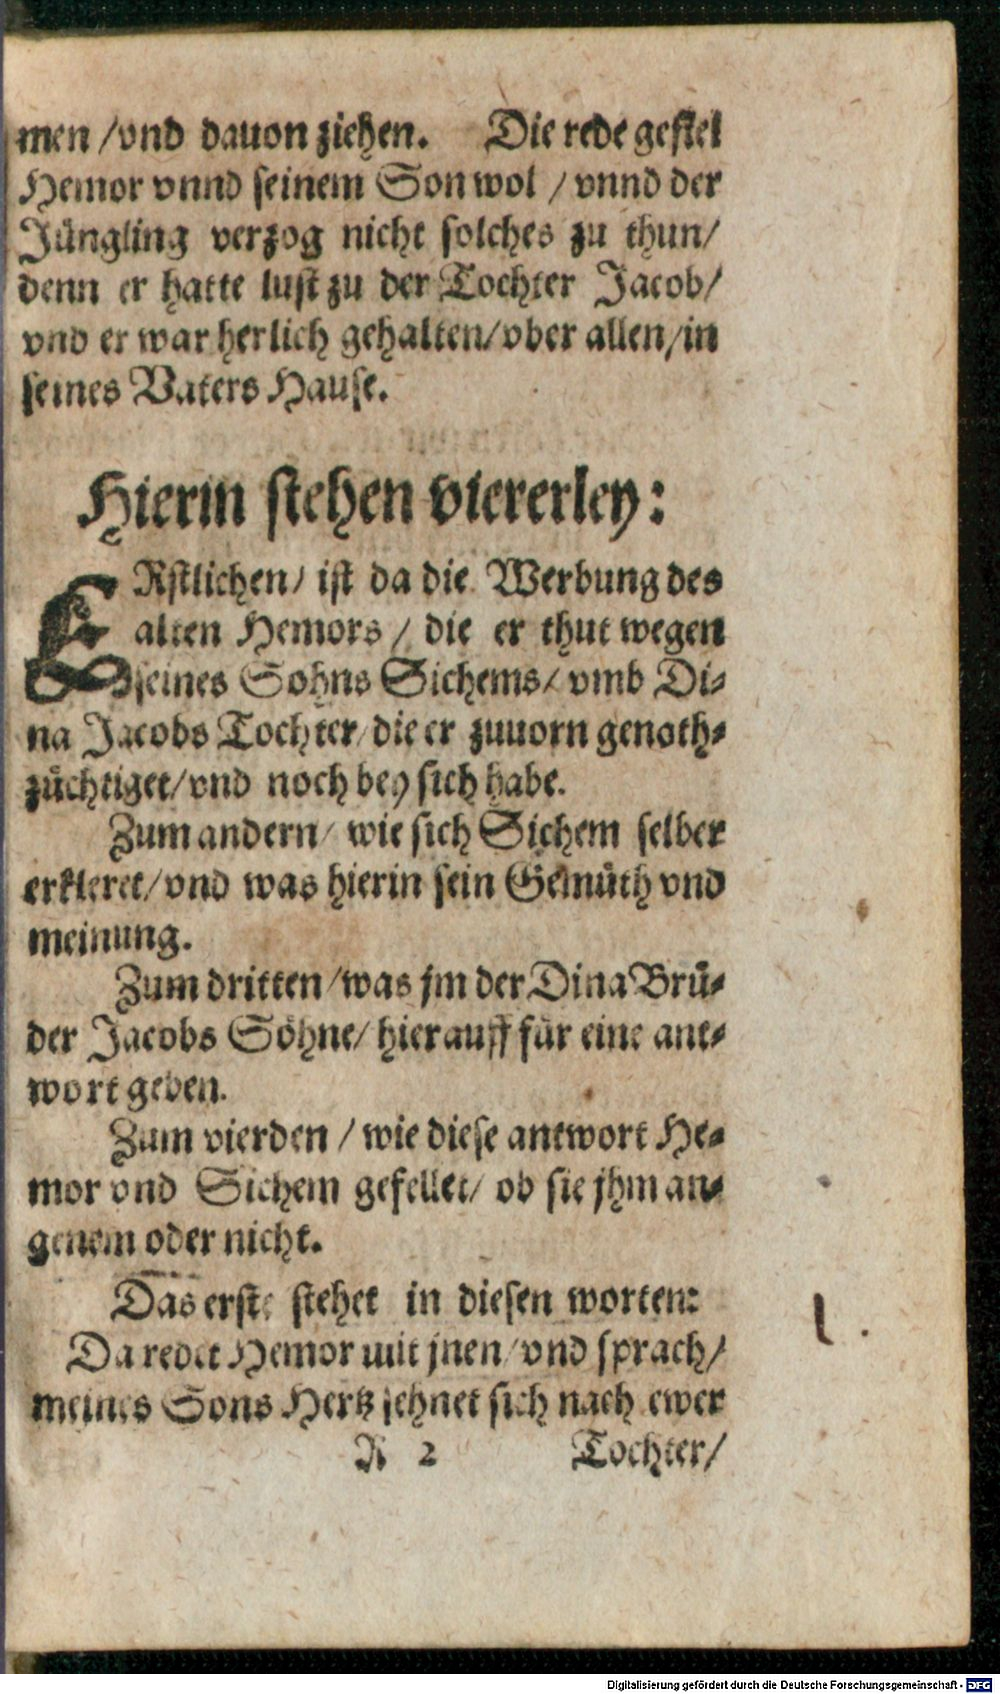 men /vnd dauon ziehen. Die rede gefiel
Hemor vnnd seinem Son wol / vnnd der
Jüngling verzog nicht solches zu thun/
denn er hatte lust zu der Tochter Jacob/
vnd er war herlich gehalten/vber allen/in
seines Vaters Hause.
Hierin stehen viererley:
ERstlichen/ ist da die Werbung des
alten Hemors / die er thut wegen
seines Sohns Sichems/ vmb Di-
na Jacobs Tochter/die er zuuorn genoth-
züchtiget/vnd noch bey sich habe.
Zum andern/ wie sich Sichem selber
erkleret/vnd was hierin sein Gemüth vnd
meinung.
Zum dritten/was jm der Dina Brü-
der Jacobs Söhne/ hierauff für eine ant-
wort geben.
Zum vierden / wie diese antwort He-
mor vnd Sichem gefellet/ ob sie jhm an-
genem oder nicht.
Das erste stehet in diesen worten:
Da redet Hemor mit jnen/vnd sprach/
meines Sons Hertz sehnet sich nach ewer
R 2 Tochter/
1.
Digitalisierung gefördert durch die Deutsche Forschungsgemeinschaft - DFG